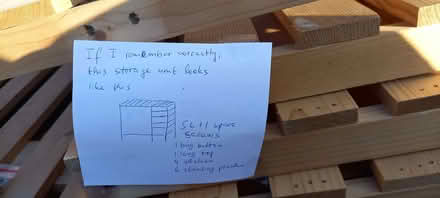 If I remember correctly,
this storage unit looks
like this
Still spare
screws
1 long bottom
1 long top
4 shelves